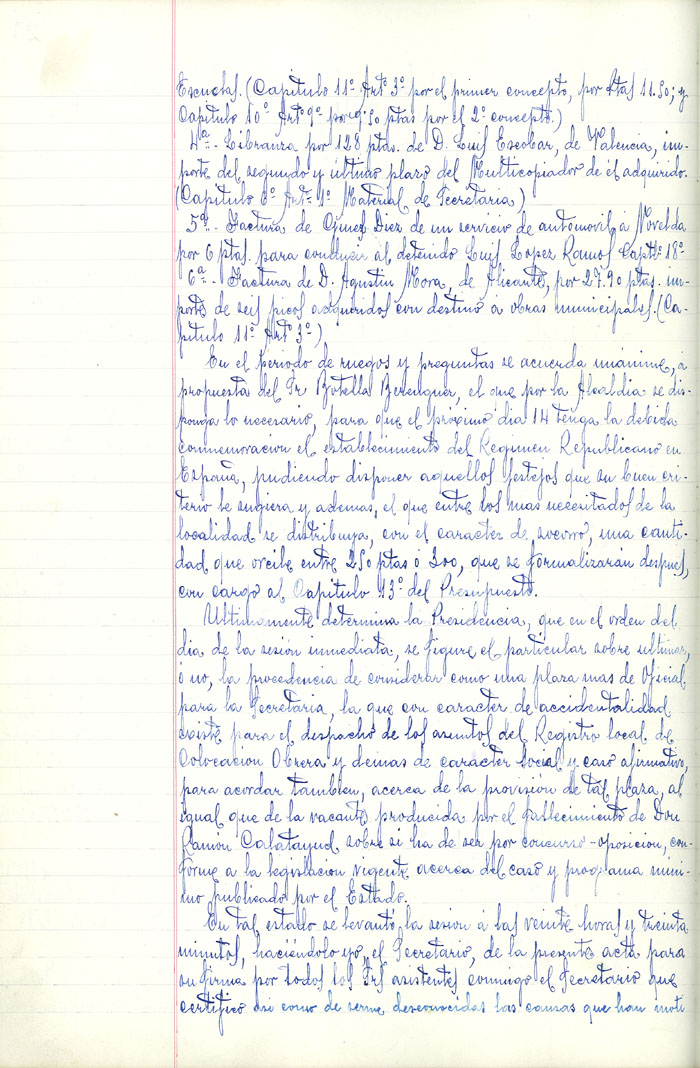 Escuelas. (Capitulo 11º Artº 3º por el primer concepto, por Ptas 11.50; y
Capitulo 10º Artº 9º por 9'50 ptas por el 2º concepto.)
4ª- Libranza por 128 ptas. de D. Luis Escobar, de Valencia, im-
porte del segundo y ultimo plazo del Multicopiador de él adquirido.
(Capitulo 6º Artº 1º Material de Secretaria)
5ª- Factura de Gines Diez de un servicio de automovil á Novelda
por 6 ptas. para conducir al detenido Luis Lopez Ramos Captº 18º
6ª- Factura de D. Agustin Mora, de Alicante, por 27.90 ptas. im-
porte de seis picos adquiridos con destino á obras municipales. (Ca-
pitulo 11º Artº 3º)
En el periodo de ruegos y preguntas se acuerda unánime, á
propuesta del Sr Botella Berenguer, el que por la Alcaldia se dis-
ponga lo necesario, para que el próximo dia 14 tenga la debida
conmemoracion el establecimiento del Regimen Republicano en
España, pudiendo disponer aquellos festejos que su buen cri-
terio le sugiera y ademas, el que entre los mas necesitados de la
localidad se distribuya, con el caracter de socorro, una canti-
dad que oscile entre 250 ptas ó 300, que se formalizarán despues,
con cargo al Capitulo 13º del Presupuesto.
Ultimamente determina la Presidencia, que en el orden del
dia de la sesión inmediata, se figure el particular sobre ultimar,
ó no, la procedencia de considerar como una plaza mas de Oficial
para la Secretaria, la que con caracter de accidentalidad
existe para el despacho de los asuntos del Registro local de
Colocacion Obrera y demas de caracter social y caso afirmativo,
para acordar tambien, acerca de la provisión de tal plaza, al
igual que de la vacante producida por el fallecimiento de Don
Ramón Calatayud sobre si ha de ser por concurso-oposicion, con-
forme a la legislacion vigente acerca del caso y programa mini-
mo publicado por el Estado.
En tal estado se levantó la sesion á las veinte horas y treinta
minutos, haciéndolo yo, el Secretario, de la presente acta para
su firma por todos los Srs asistentes conmigo el Secretario que
certifico asi como de serme desconocidas las causas que han moti-